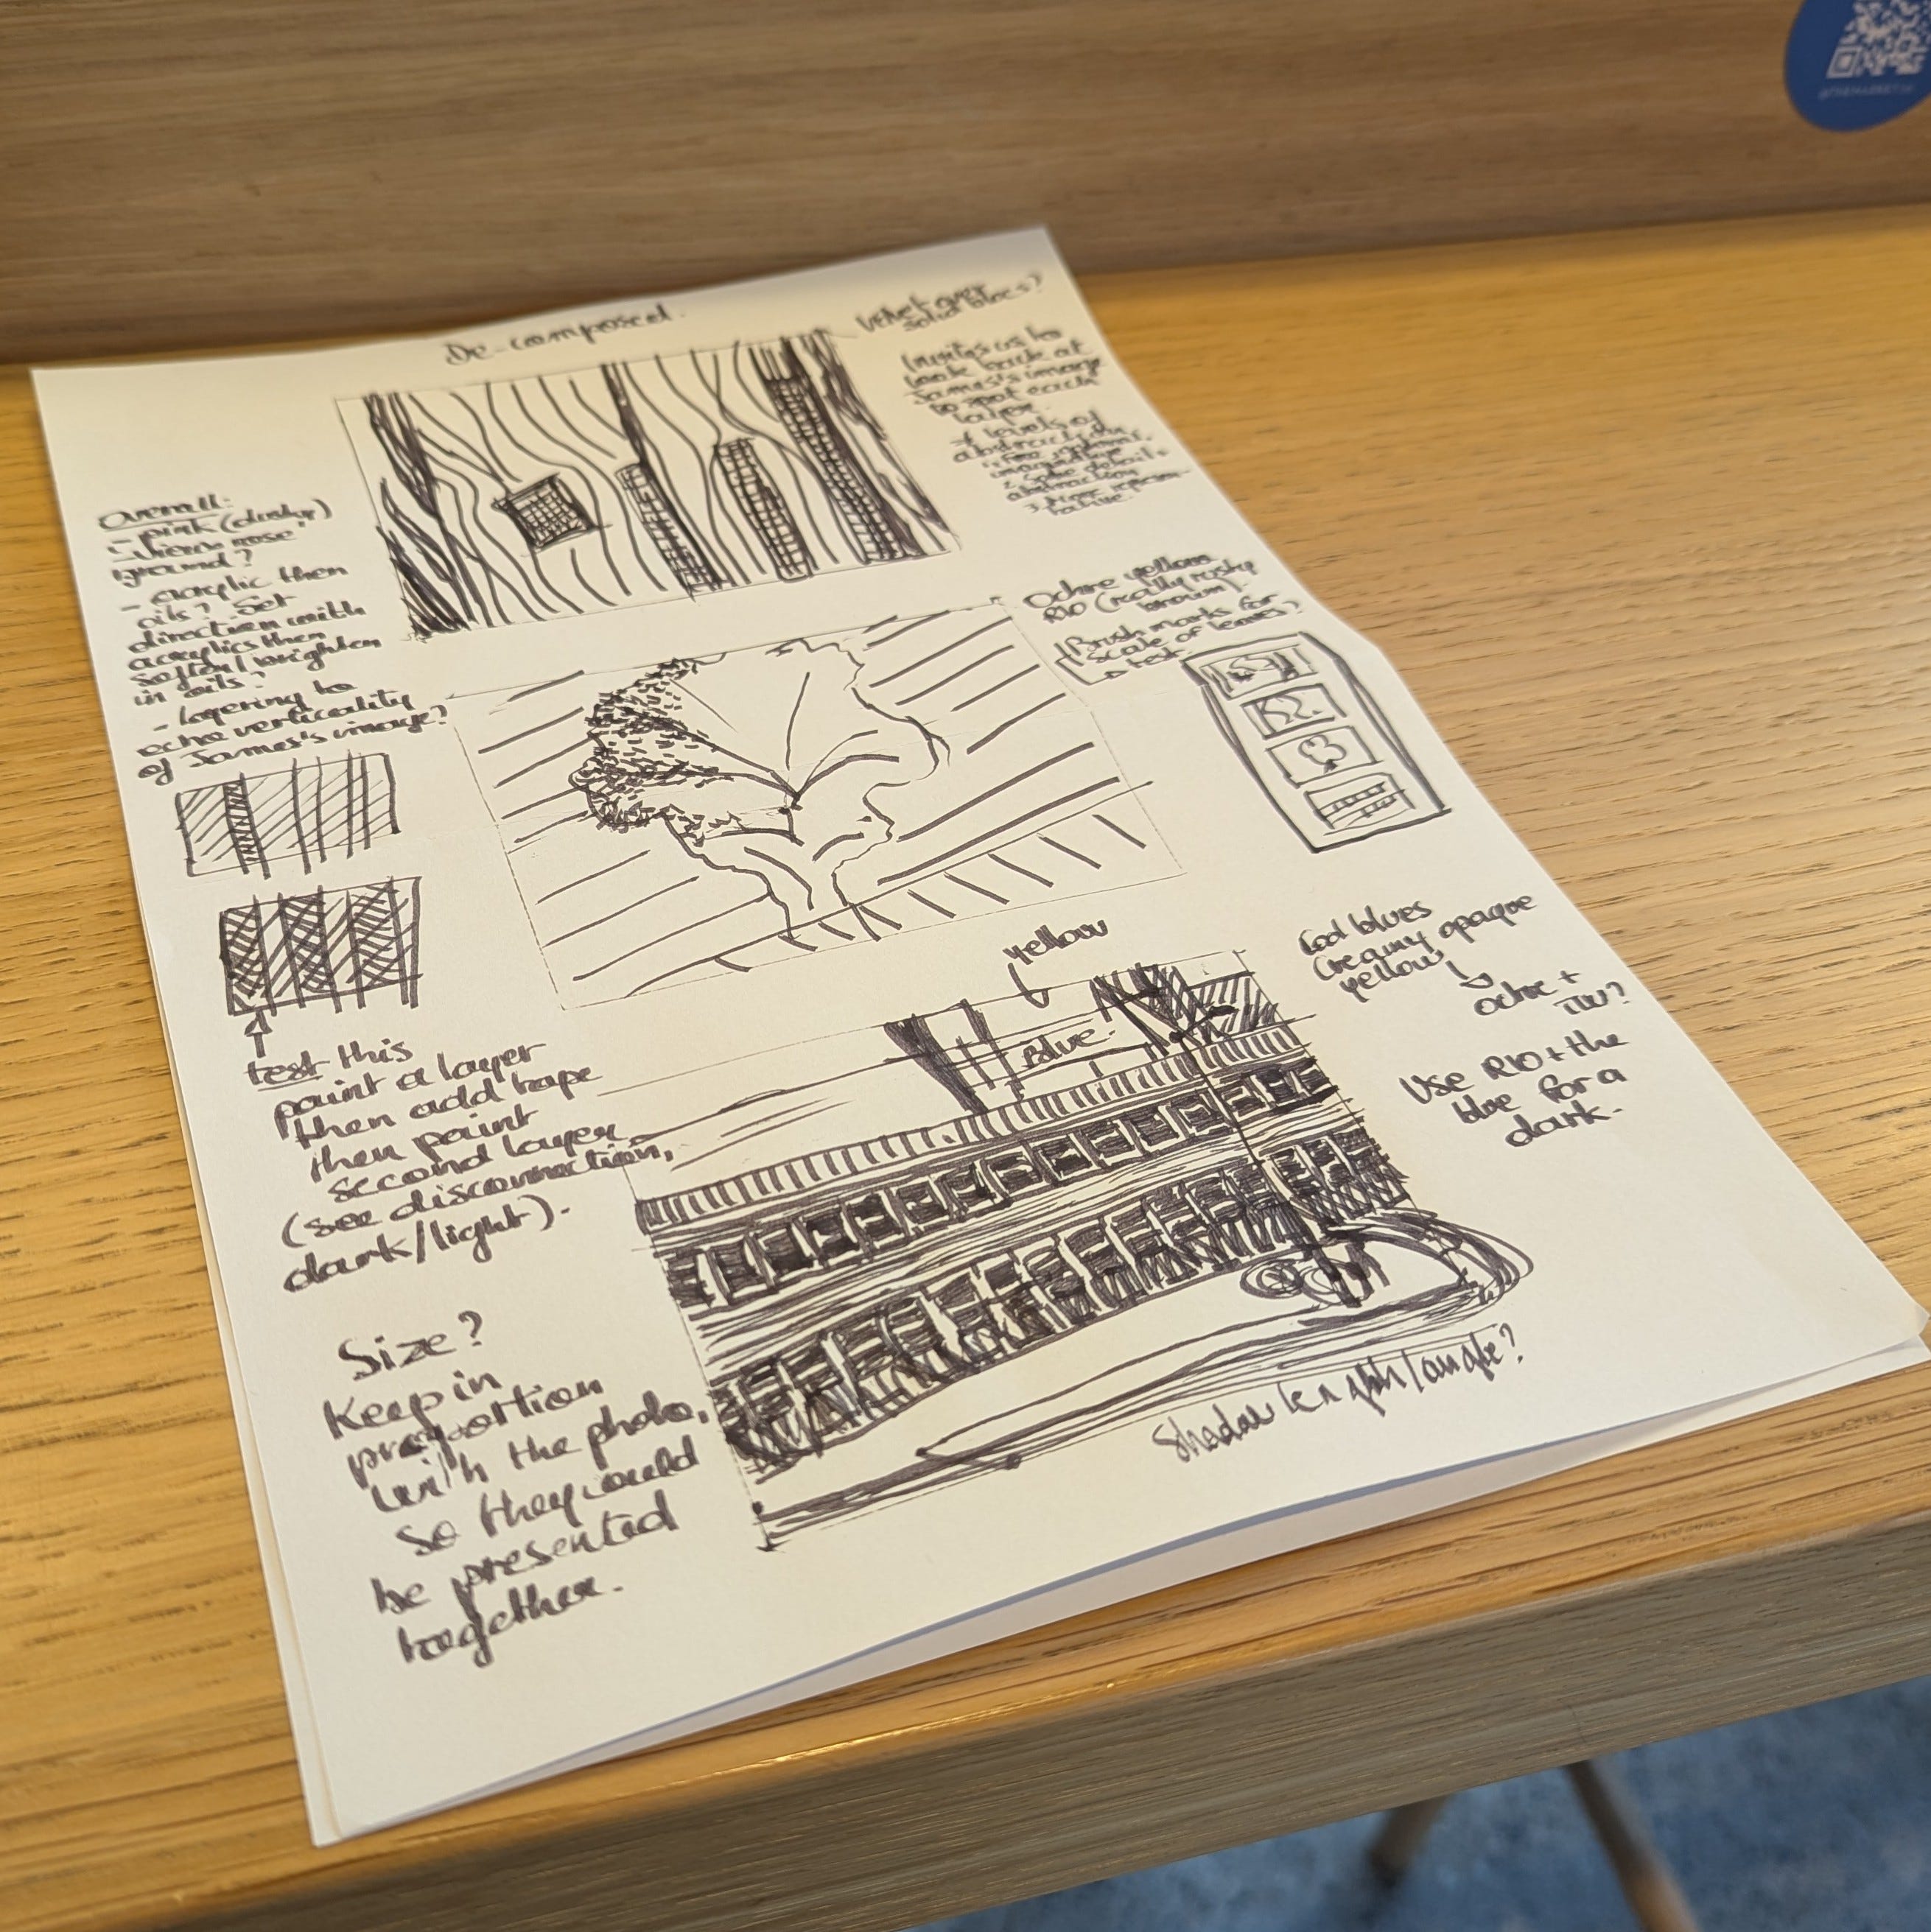 De-composed.
Velvet over
solid blocs?
Invites us to
look back at
James's image
to spot each
layer.
levels of
abstraction
image/type
2 some detail +
abstraction
3 More represen-
tative.
Overall:
- pink (dusky)
"vienna rose"
ground?
- acrylic then
oils? Set
direction with
acrylics then
soften/brighten
in oils?
- layering to
echo verticality
of James's image?
Ochre yellow
RIO (really rusty
brown).
Brush marks for
scale of leaves?
test.
test this
paint a layer
then add tape
then paint
second layer
(see disconnection,
dark/light).
yellow
Blue.
Cool blues
Creamy opaque
yellows
ochre +
TW?
Use RIO + the
blue for a
dark.
Shadow length/angle?
Size?
Keep in
proportion
with the photo,
so they could
be presented
together.